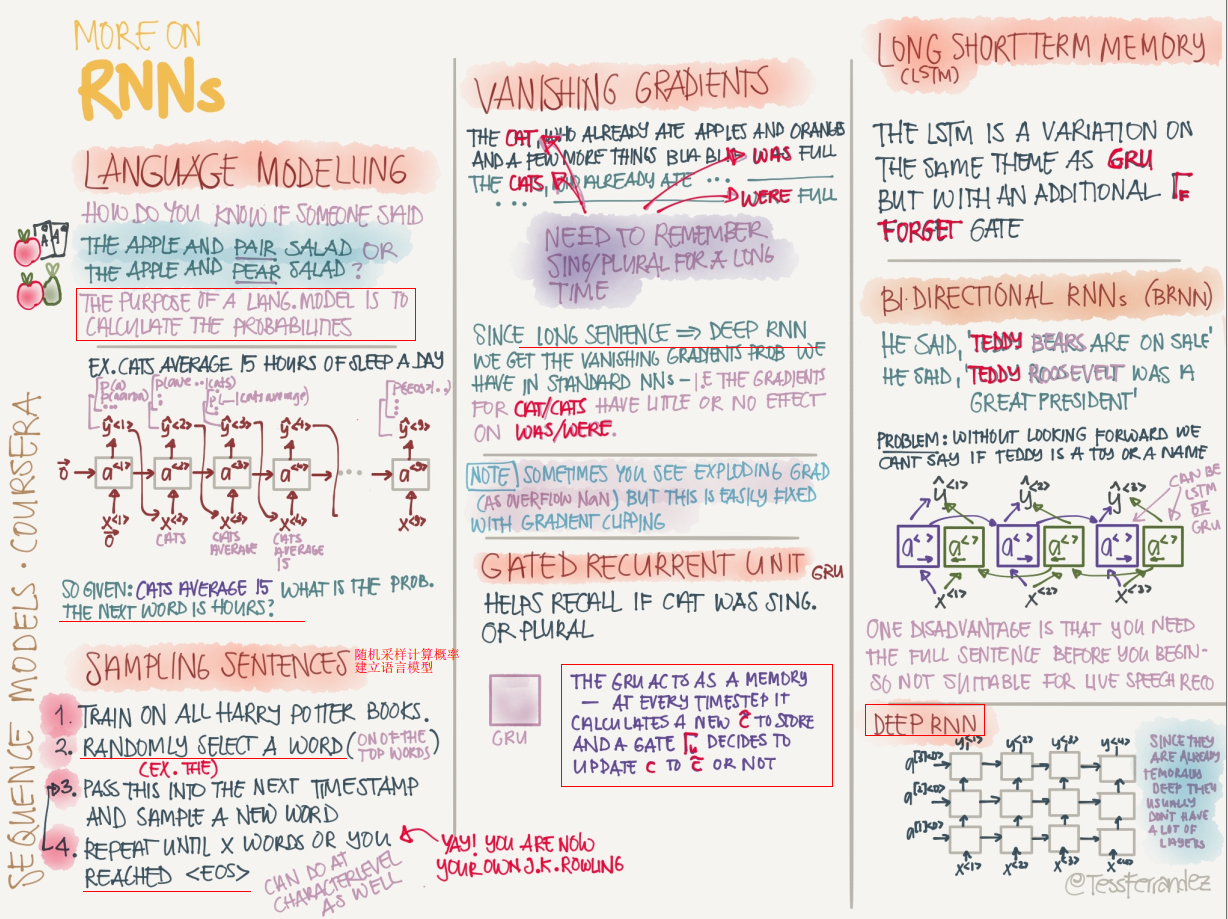 MORE ON
RNNs
SEQUENCE MODELS · COURSERA
LANGUAGE MODELLING
HOW DO YOU KNOW IF SOMEONE SAID
THE APPLE AND PAIR SALAD OR
THE APPLE AND PEAR SALAD?
THE PURPOSE OF A LANG.MODEL IS TO
CALCULATE THE PROBABILITIES
EX. CATS AVERAGE 15 HOURS OF SLEEP A DAY
p(a) p(ave...|cats) p(eos|...)
p(aaron) p(_|cats average)
ŷ<1> ŷ<2> ŷ<3> ŷ<4> ŷ<9>
0 a<1> a<2> a<3> a<4> ... a<9>
x<1> x<2> x<3> x<4> x<9>
0 CATS CATS CATS
AVERAGE AVERAGE
15
SO GIVEN: CATS AVERAGE 15 WHAT IS THE PROB.
THE NEXT WORD IS HOURS?
SAMPLING SENTENCES
随机采样计算概率
建立语言模型
1. TRAIN ON ALL HARRY POTTER BOOKS.
2. RANDOMLY SELECT A WORD (ON OF THE
TOP WORDS)
(EX. THE)
3. PASS THIS INTO THE NEXT TIMESTAMP
AND SAMPLE A NEW WORD
4. REPEAT UNTIL X WORDS OR YOU
REACHED <EOS>
CAN DO AT
CHARACTER LEVEL
AS WELL
YAY! YOU ARE NOW
YOUR OWN J.K.ROWLING
VANISHING GRADIENTS
THE CAT, WHO ALREADY ATE APPLES AND ORANGE
AND A FEW MORE THINGS BLA BLA WAS FULL
THE CATS, WHO ALREADY ATE ...
... WERE FULL
NEED TO REMEMBER
SING/PLURAL FOR A LONG
TIME
SINCE LONG SENTENCE ⇒ DEEP RNN
WE GET THE VANISHING GRADIENTS PROB WE
HAVE IN STANDARD NNs - I.E THE GRADIENTS
FOR CAT/CATS HAVE LITLE OR NO EFFECT
ON WAS/WERE.
NOTE SOMETIMES YOU SEE EXPLODING GRAD
(AS OVERFLOW NaN) BUT THIS IS EASILY FIXED
WITH GRADIENT CLIPPING
GATED RECURRENT UNIT GRU
HELPS RECALL IF CAT WAS SING.
OR PLURAL
GRU
THE GRU ACTS AS A MEMORY
— AT EVERY TIMESTEP IT
CALCULATES A NEW c̃ TO STORE
AND A GATE Γu DECIDES TO
UPDATE C TO c̃ OR NOT
LONG SHORT TERM MEMORY
(LSTM)
THE LSTM IS A VARIATION ON
THE SAME THEME AS GRU
BUT WITH AN ADDITIONAL ΓF
FORGET GATE
BI-DIRECTIONAL RNNs (BRNN)
HE SAID, 'TEDDY BEARS ARE ON SALE'
HE SAID, 'TEDDY ROOSEVELT WAS A
GREAT PRESIDENT'
PROBLEM: WITHOUT LOOKING FORWARD WE
CANT SAY IF TEDDY IS A TOY OR A NAME
ŷ<1> ŷ<2> ŷ<3>
CAN BE
LSTM
OR
GRU
a<> a<> a<> a<> a<> a<>
x<1> x<2> x<3>
ONE DISADVANTAGE IS THAT YOU NEED
THE FULL SENTENCE BEFORE YOU BEGIN-
SO NOT SUITABLE FOR LIVE SPEECH RECO
DEEP RNN
y<1> y<2> y<3> y<4>
a[3]<0>
a[2]<0>
a[1]<0>
x<1> x<2> x<3> x<4>
SINCE THEY
ARE ALREADY
TEMORALLY
DEEP THEY
USUALLY
DON'T HAVE
A LOT OF
LAYERS
@TessFerrandez